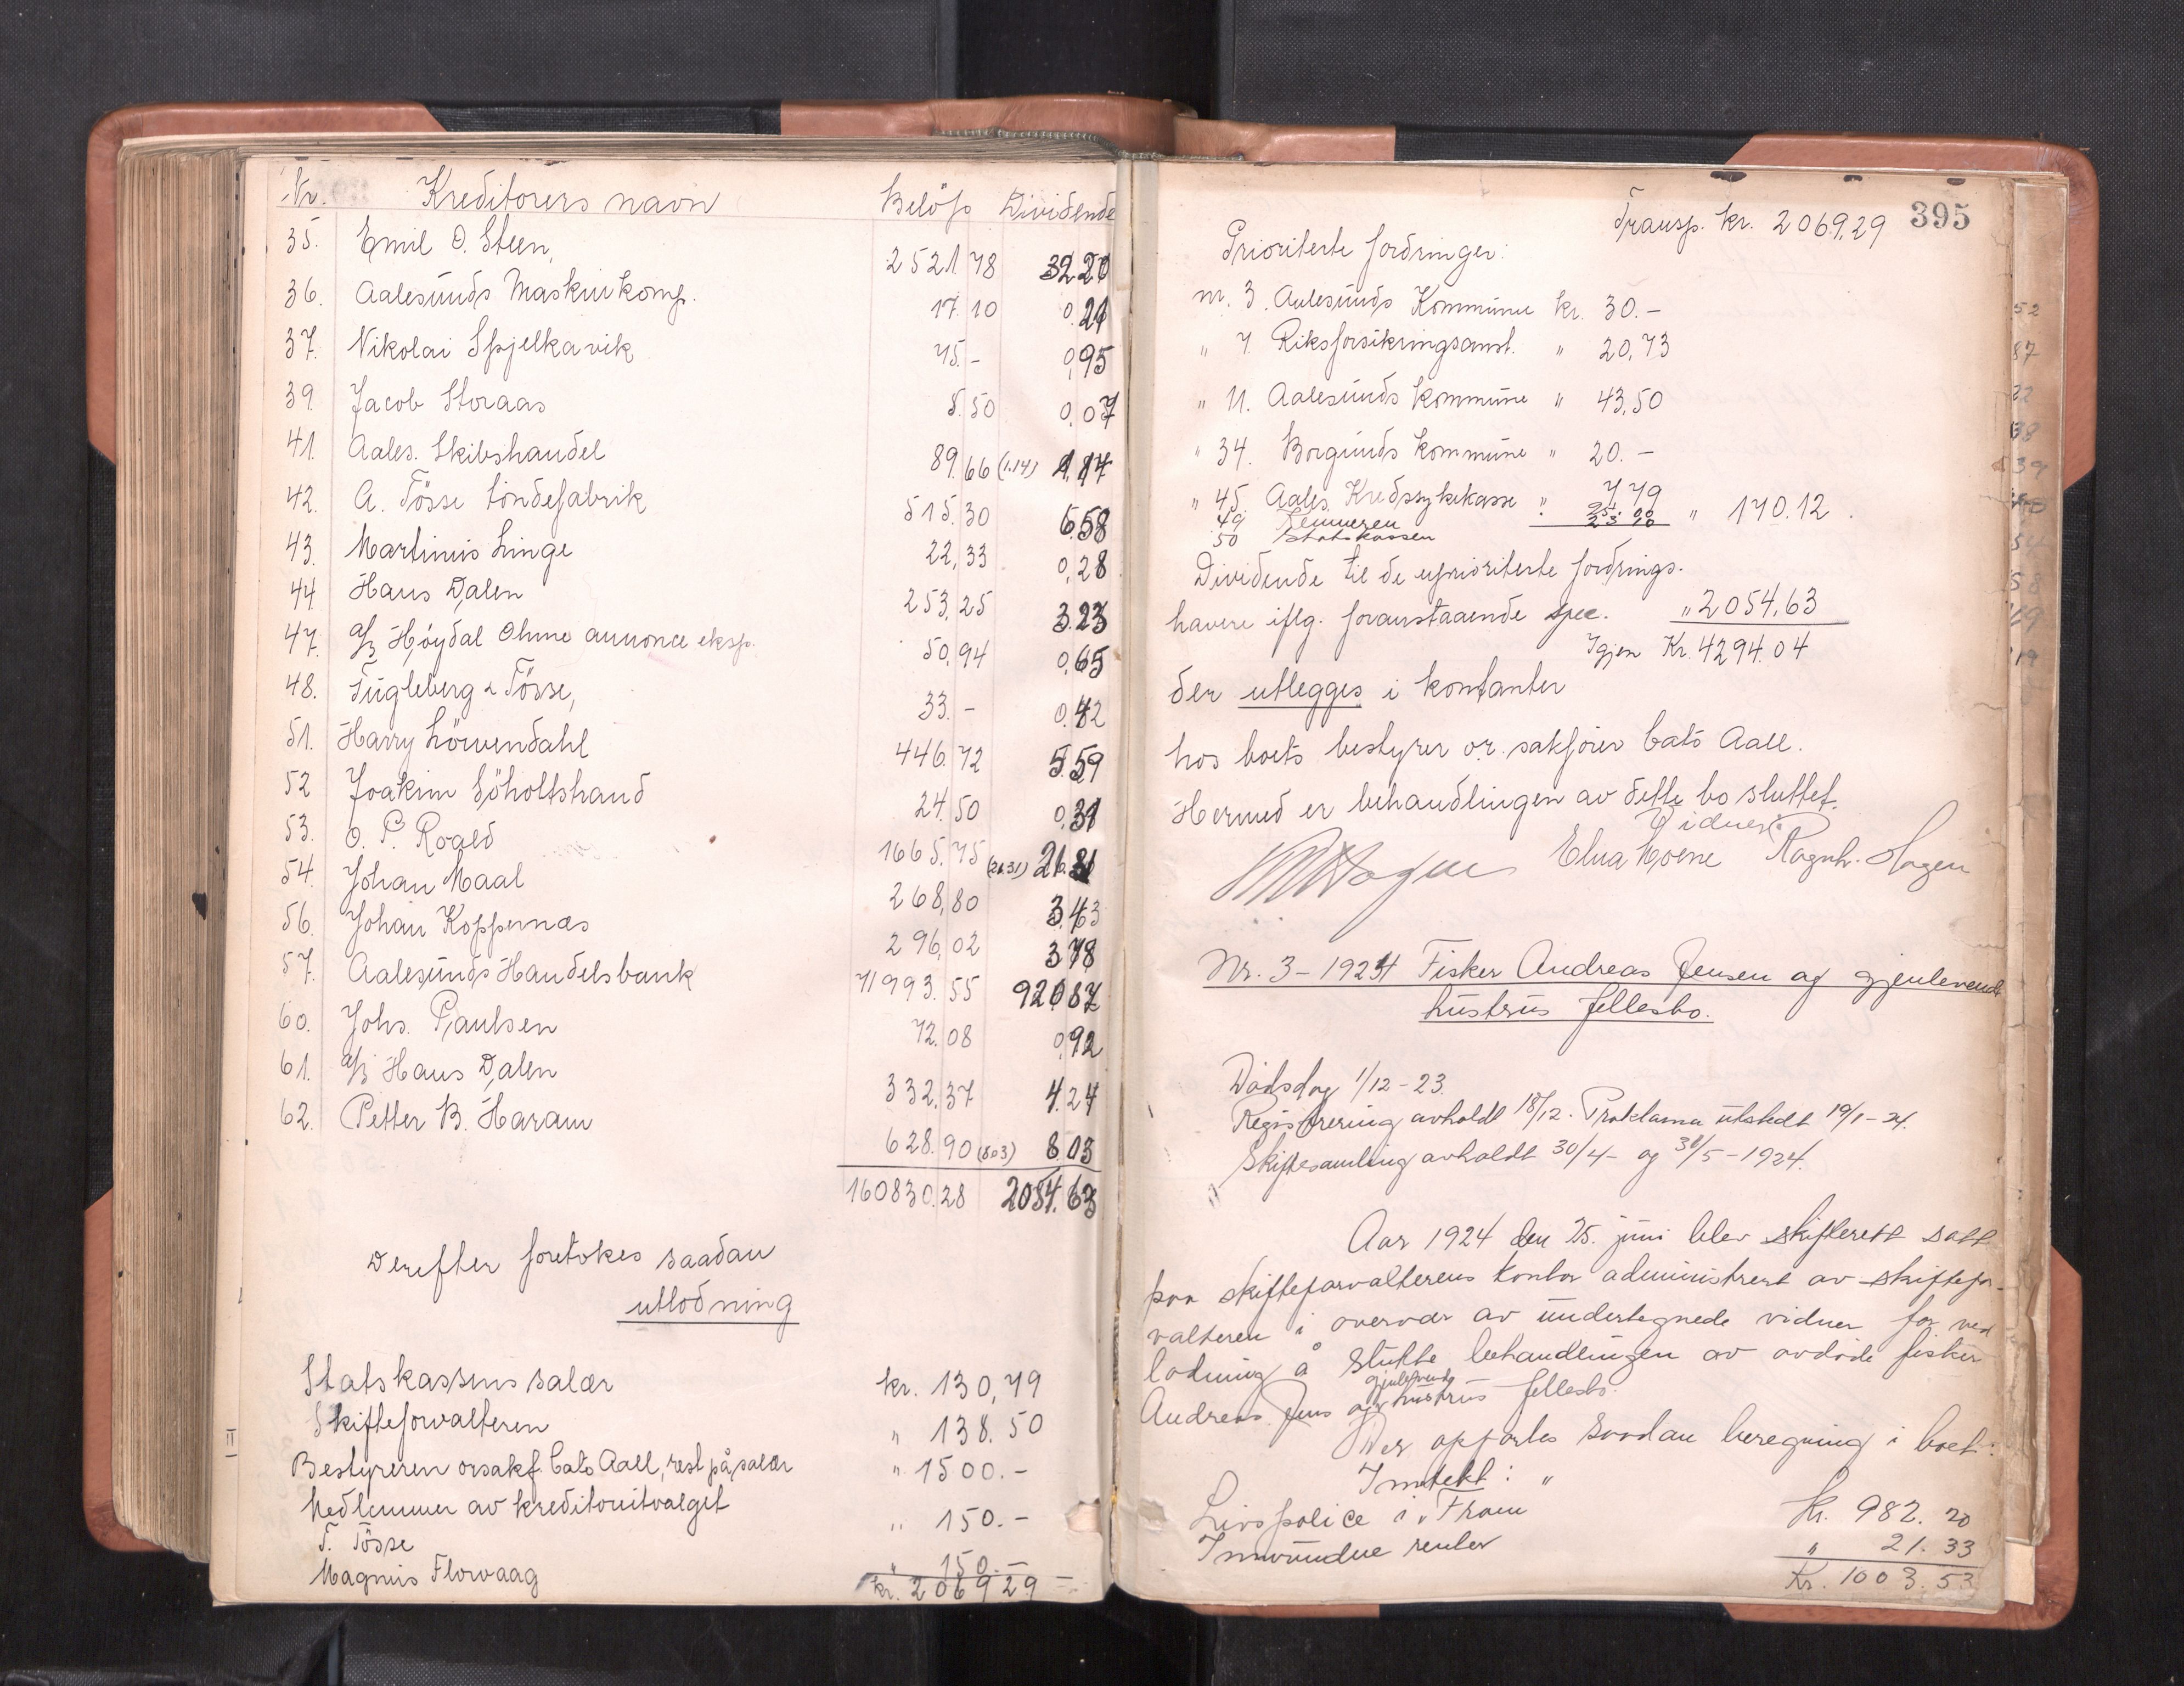 Nr. Kreditorers navn Beløp Dividende
35. Emil O. Steen, 2521 78 32.20
36. Aalesunds Maskinkomp. 17.10 0.21
37. Nikolai Spjelkavik 75.- 0,95
39. Jacob Storaas 5.50 0.07
41. Aales. Skibshandel 89.66 (1.14) 1,14
42. A. Tösse töndefabrik 515.30 6.58
43. Martinus Linge 22,33 0,28
44. Hans Dalen 253,25 3.23
47. A/S Høydal Ohme annonce eksp. 50,94 0,65
48. Fugleberg & Tösse, 33.- 0.42
51. Harry Löwendahl 446.72 5.59
52 Joakim Söholtshaud 24.50 0.31
53. O. P. Roald 1665.75 (21.31) 21.31
54. Johan Maal 268,80 3.43
56. Johan Koppernæs 296,02 3.78
57. Aalesunds Handelsbank 71993.55 920.87
60. Johs. Paulsen 72.08 0,92
61. A/S Hans Dalen 332.37 4.24
62. Petter B. Haram 628.90 (8.03) 8.03
160830.28 2054.63
Derefter foretokes saadan
utlodning
Statskassens salær kr. 130,79
Skifteforvalteren " 138.50
Bestyreren orsakf. Cato Aall, rest på salær " 1500.-
Medlemmer av kreditorutvalget
T. Tösse " 150.-
Magnus Flovaag " 150.-
kr. 2069 29
395
Transp. kr. 2069,29
Prioriterte fordringer:
nr. 3. Aalesunds Kommune kr. 30.-
" 7. Riksforsikringsanst. " 20,73
" 11. Aalesunds kommune " 43,50
" 34. Borgunds kommune " 20.-
" 45. Aales. Kredssykekasse " 7,79
49 Kemneren
50 Statskassen " 170.12.
Dividende til de uprioriterte fordrings-
havere iflg. foranstaaende spec. " 2054,63
Igjen Kr. 4294.04
der utlegges i kontanter
hos boets bestyrer o.r. sakfører Cato Aall.
Hermed er behandlingen av dette bo sluttet.
Vidner:
Ragnh. Hagen
Nr. 3 - 1924 Fisker Andreas Jensen og gjenlevende
hustrus fellesbo.
Dødsdag 1/12 - 23.
Registrering avholdt 18/12. Proklama utstedt 19/1 - 24.
Skiftesamling avholdt 30/4 - og 31/5 - 1924.
Aar 1924 den 25. juni blev skifterett satt
paa skifteforvalterens kontor administrert av skiftefor-
valteren i overvær av undertegnede vidner for ved
lodning å slutte behandlingen av avdøde fisker
Andreas Jens og gjenlevende hustrus fellesbo.
Der opførtes saadan beregning i boet:
Inntekt: "
Livspolice i "Fram kr. 982. 20
Innvundne renter " 21. 33
Kr. 1003. 53